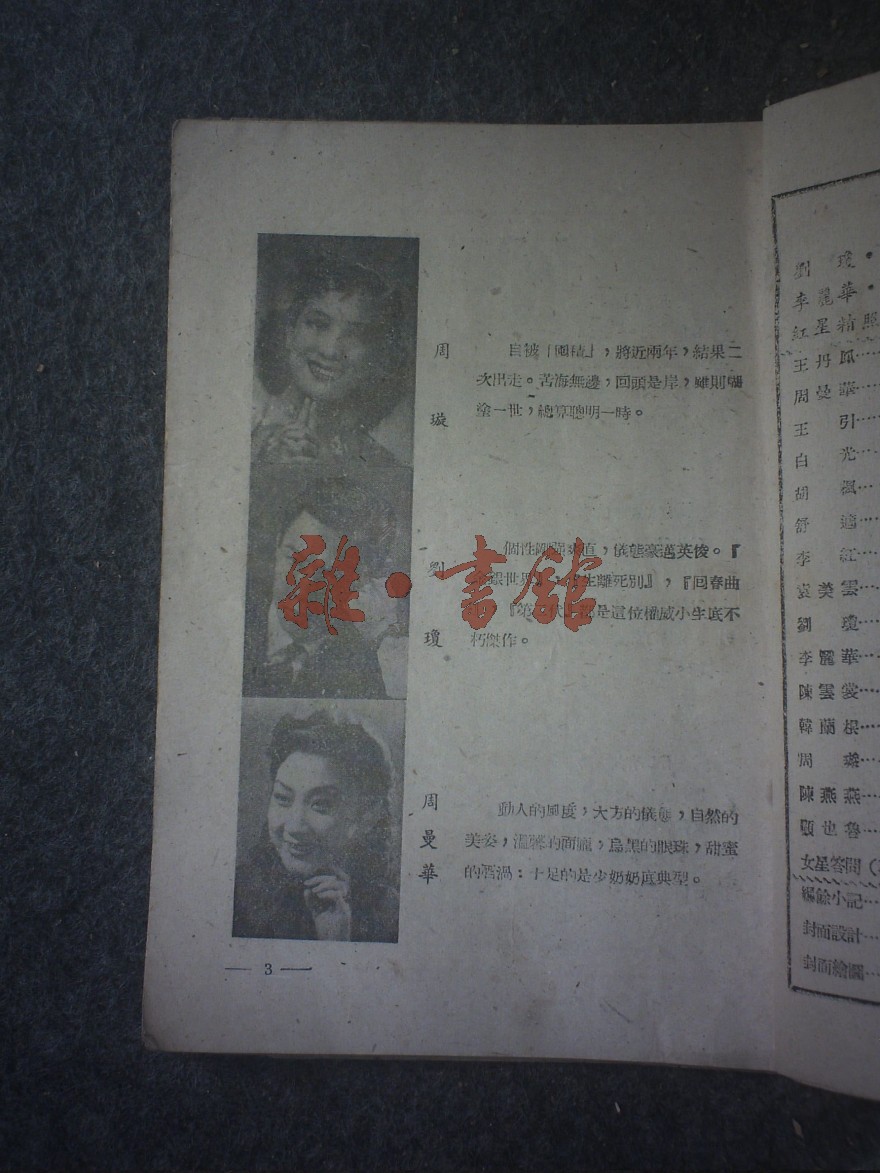 周璇
自被「囤積」，將近兩年，結果二
次出走。苦海無邊，回頭是岸，雖則糊
塗一世，總算聰明一時。
劉瓊
個性 直，儀態豪邁英俊。『
銀世界』，『生離死別』，『回春曲
『第 代』都是這位權威小生底不
朽傑作。
周曼華
動人的風度，大方的儀態，自然的
美姿，溫馨的面龐，烏黑的眼珠，甜蜜
的酒渦：十足的是少奶奶底典型。
— 3 —
雜·書館
劉瓊·
李麗華·
紅星精照
王丹鳳……
周曼華……
王引……
白光……
胡楓……
舒適……
李紅……
袁美雲……
劉瓊……
李麗華……
陳雲裳……
韓蘭根……
周璇……
陳燕燕……
顧也魯……
女星答問（
編餘小記……
封面設計……
封面繪圖……